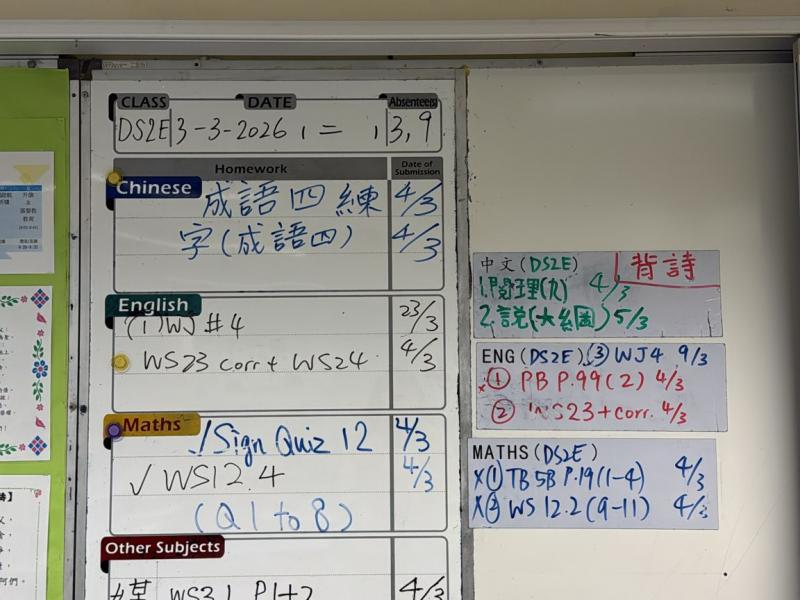 CLASS DATE Absentees
DS2E 3-3-2026, 二, 3, 9
Homework Date of Submission
Chinese
成語四練 4/3
字(成語四) 4/3
English
(1) WJ #4 23/3
WS23 corr + WS24 4/3
Maths
✓ Sign Quiz 12 4/3
✓ WS12.4 4/3
(Q1 to 8)
Other Subjects
WS3.1 P1+2 4/3
中文(DS2E) 背詩
1.閱理(九) 4/3
2.說(大綱) 5/3
ENG (DS2E) (3) WJ4 9/3
x① PB P.99(2) 4/3
② WS23+corr. 4/3
MATHS (DS2E)
x① TB 5B P.19(1-4) 4/3
x② WS 12.2(9-11) 4/3